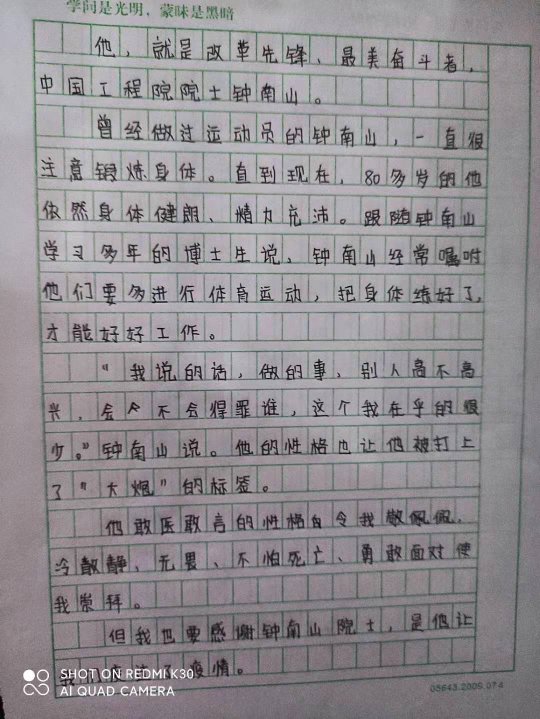 学问是光明，蒙昧是黑暗
他，就是改革先锋、最美奋斗者，
中国工程院院士钟南山。
曾经做过运动员的钟南山，一直很
注意锻炼身体。直到现在，80多岁的他
依然身体健朗、精力充沛。跟随钟南山
学习多年的博士生说，钟南山经常嘱咐
他们要多进行体育运动，把身体练好了，
才能好好工作。
“我说的话，做的事，别人高不高
兴，会不会得罪谁，这个我在乎的很
少。”钟南山说。他的性格也让他被打上
了“大炮”的标签。
他敢医敢言的性格令我敬佩，
冷静、无畏、不怕死亡、勇敢面对使
我崇拜。
但我也要感谢钟南山院士，是他让
我们 疫情。
SHOT ON REDMI K30
AI QUAD CAMERA
05643.2009.07.4